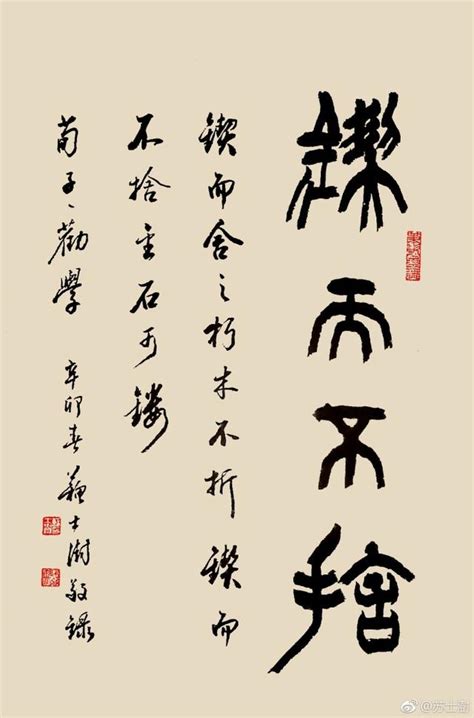 鍥而不捨
鍥而舍之朽木不折鍥而
不捨金石可鏤
荀子、勸學 辛卯春蘇士澍敬錄
@苏士澍